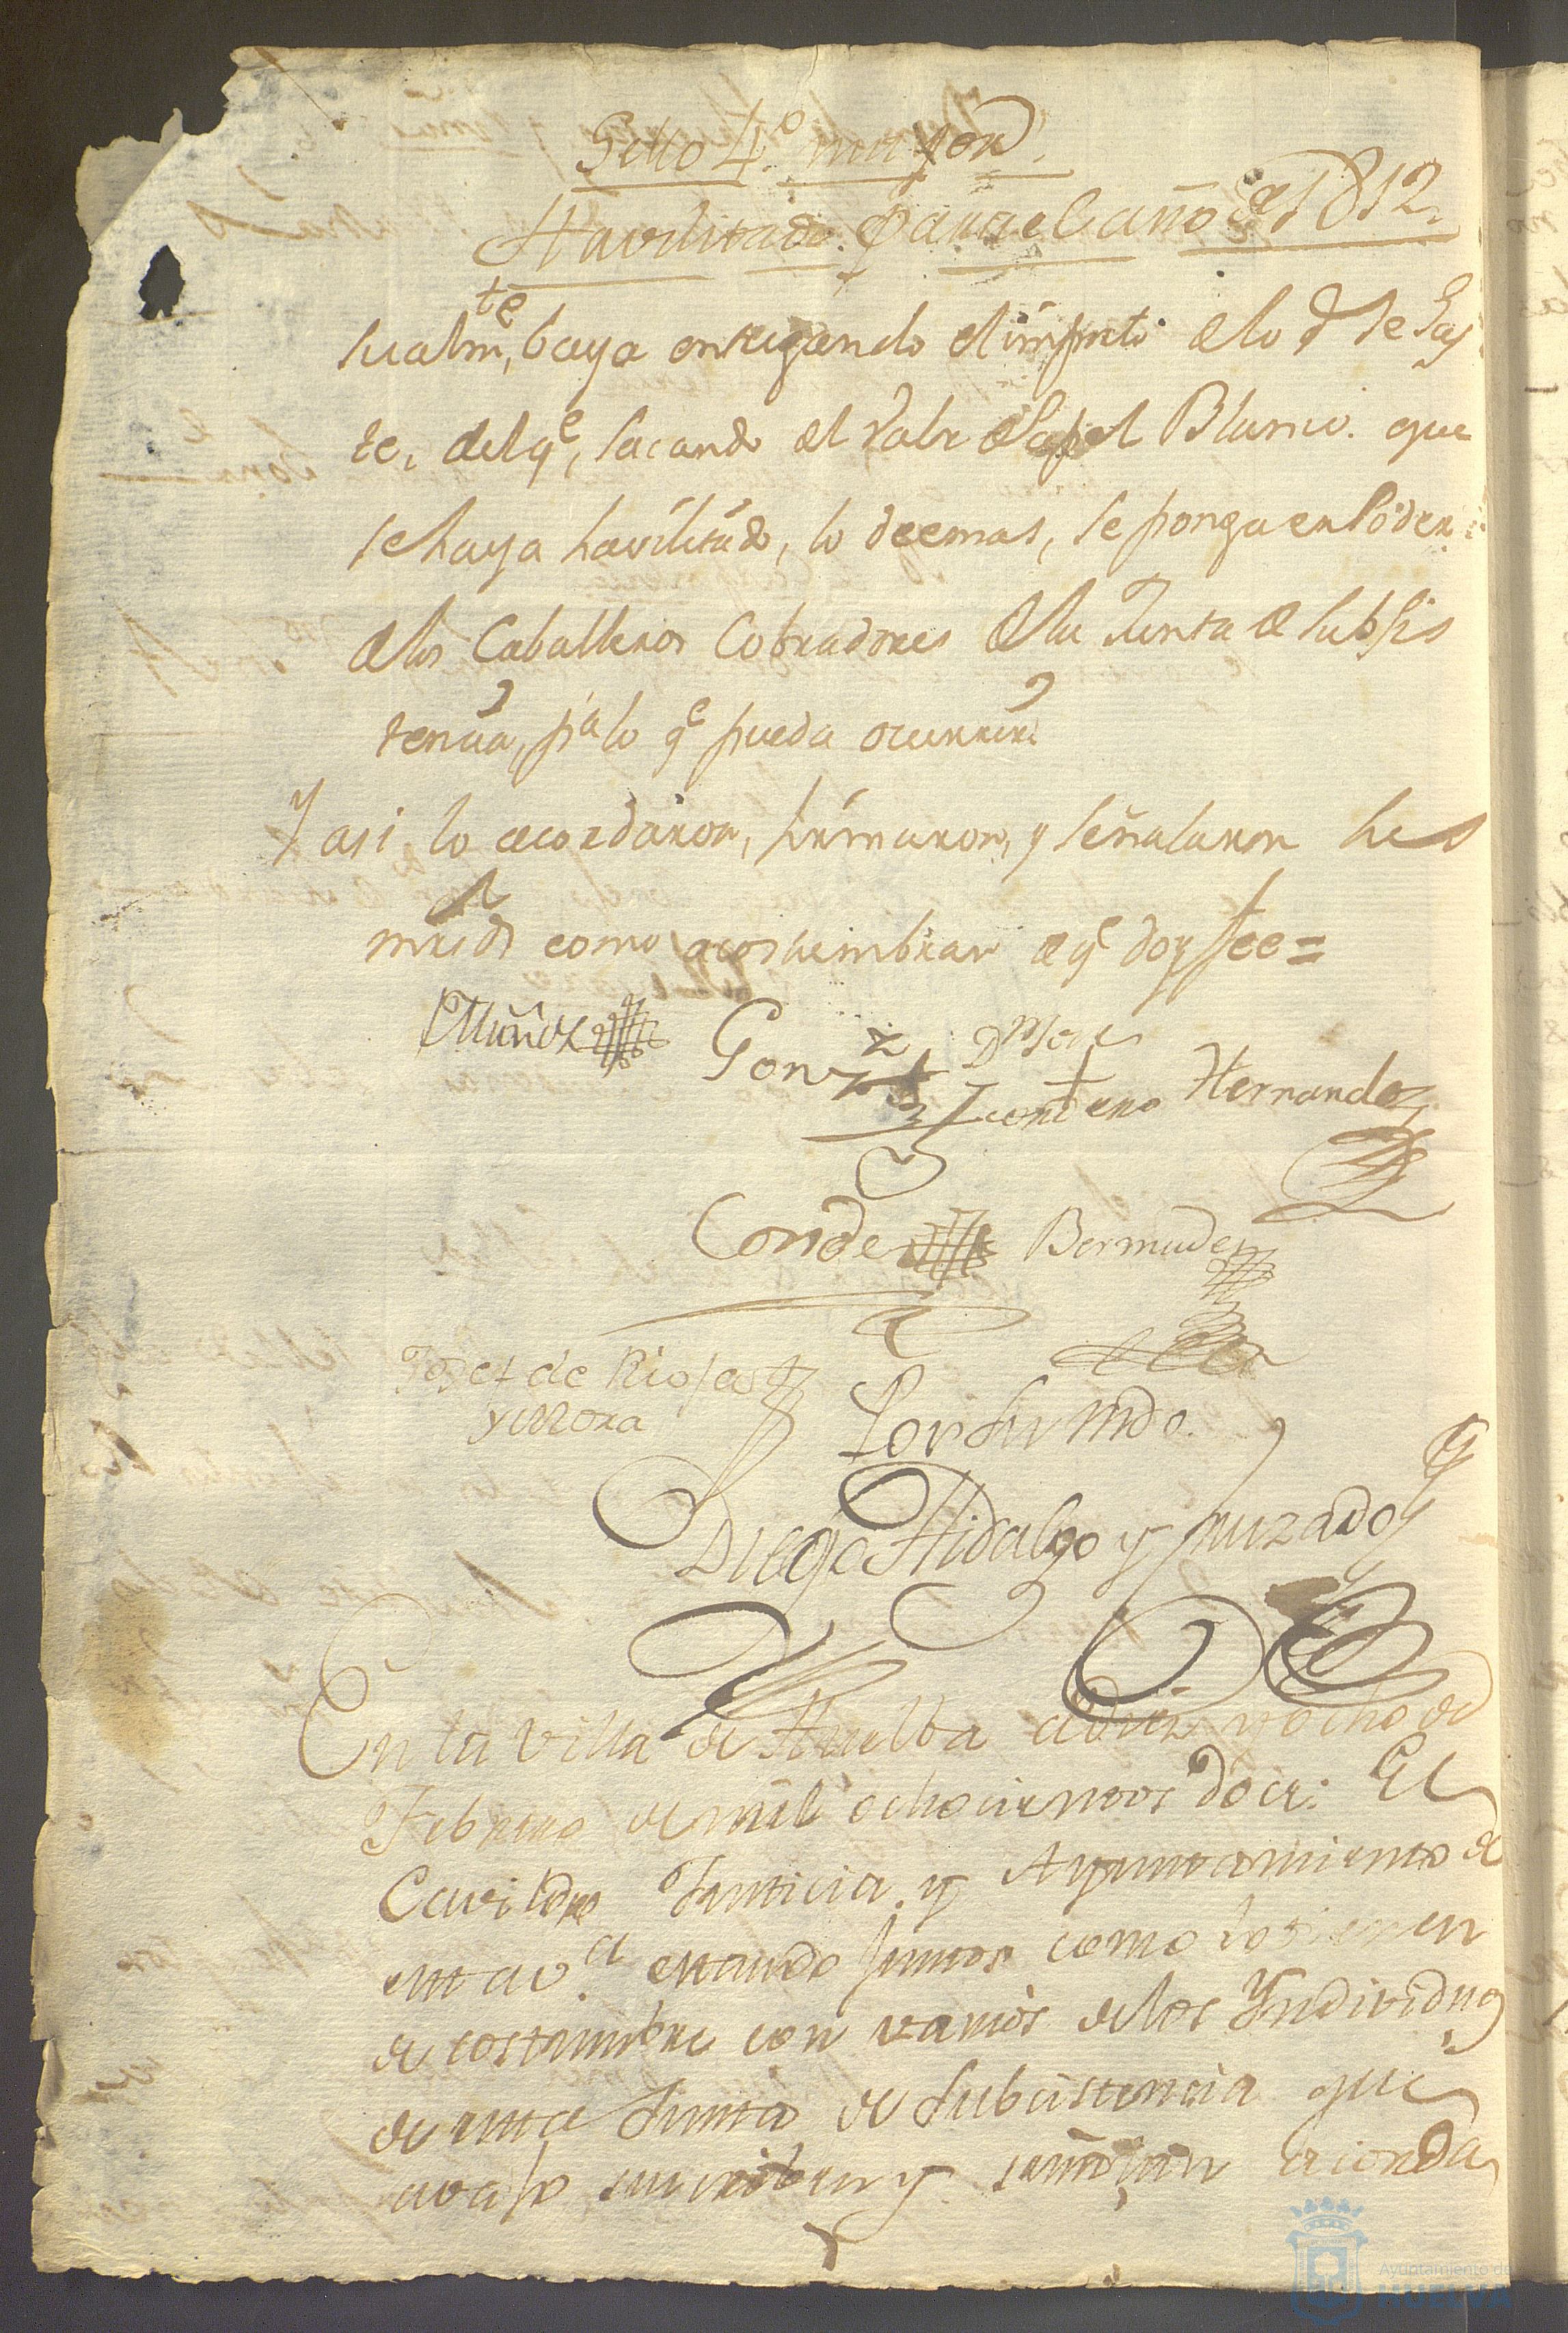 Sello 4.º mayor.
Havilitado. para el año de 1812.
sualmte, baya entregando el impte. de lo q se gas
te, del qe, sacando el valr del papel Blanco. que
se haya havilitado, lo deemas, se ponga en Poder
de los Caballeros Cobradores de la Junta de Subsis
tencia, pa lo qe pueda ocurrir.
Y asi lo acordaron, firmaron, y señalaron sus
mrcds como acostumbran de qe doy fee=
Muñoz Gonzz Dn Jose
Contreno Hernandez
Conde Bermudez
Josef de Rioja
y Mora
Por su mdo.
Diego Hidalgo y Juzado
En la villa de Huelba a diez y ocho de
Febrero de mil ochocientos doce: El
Cavildo Justicia y Ayuntamiento de
esta va. estando juntos como lo tienen
de costumbre con varios de los Yndividuos
de esta Junta de Subcistencia que
avajo suscriben y señalan acorda
Ayuntamiento de
HUELVA